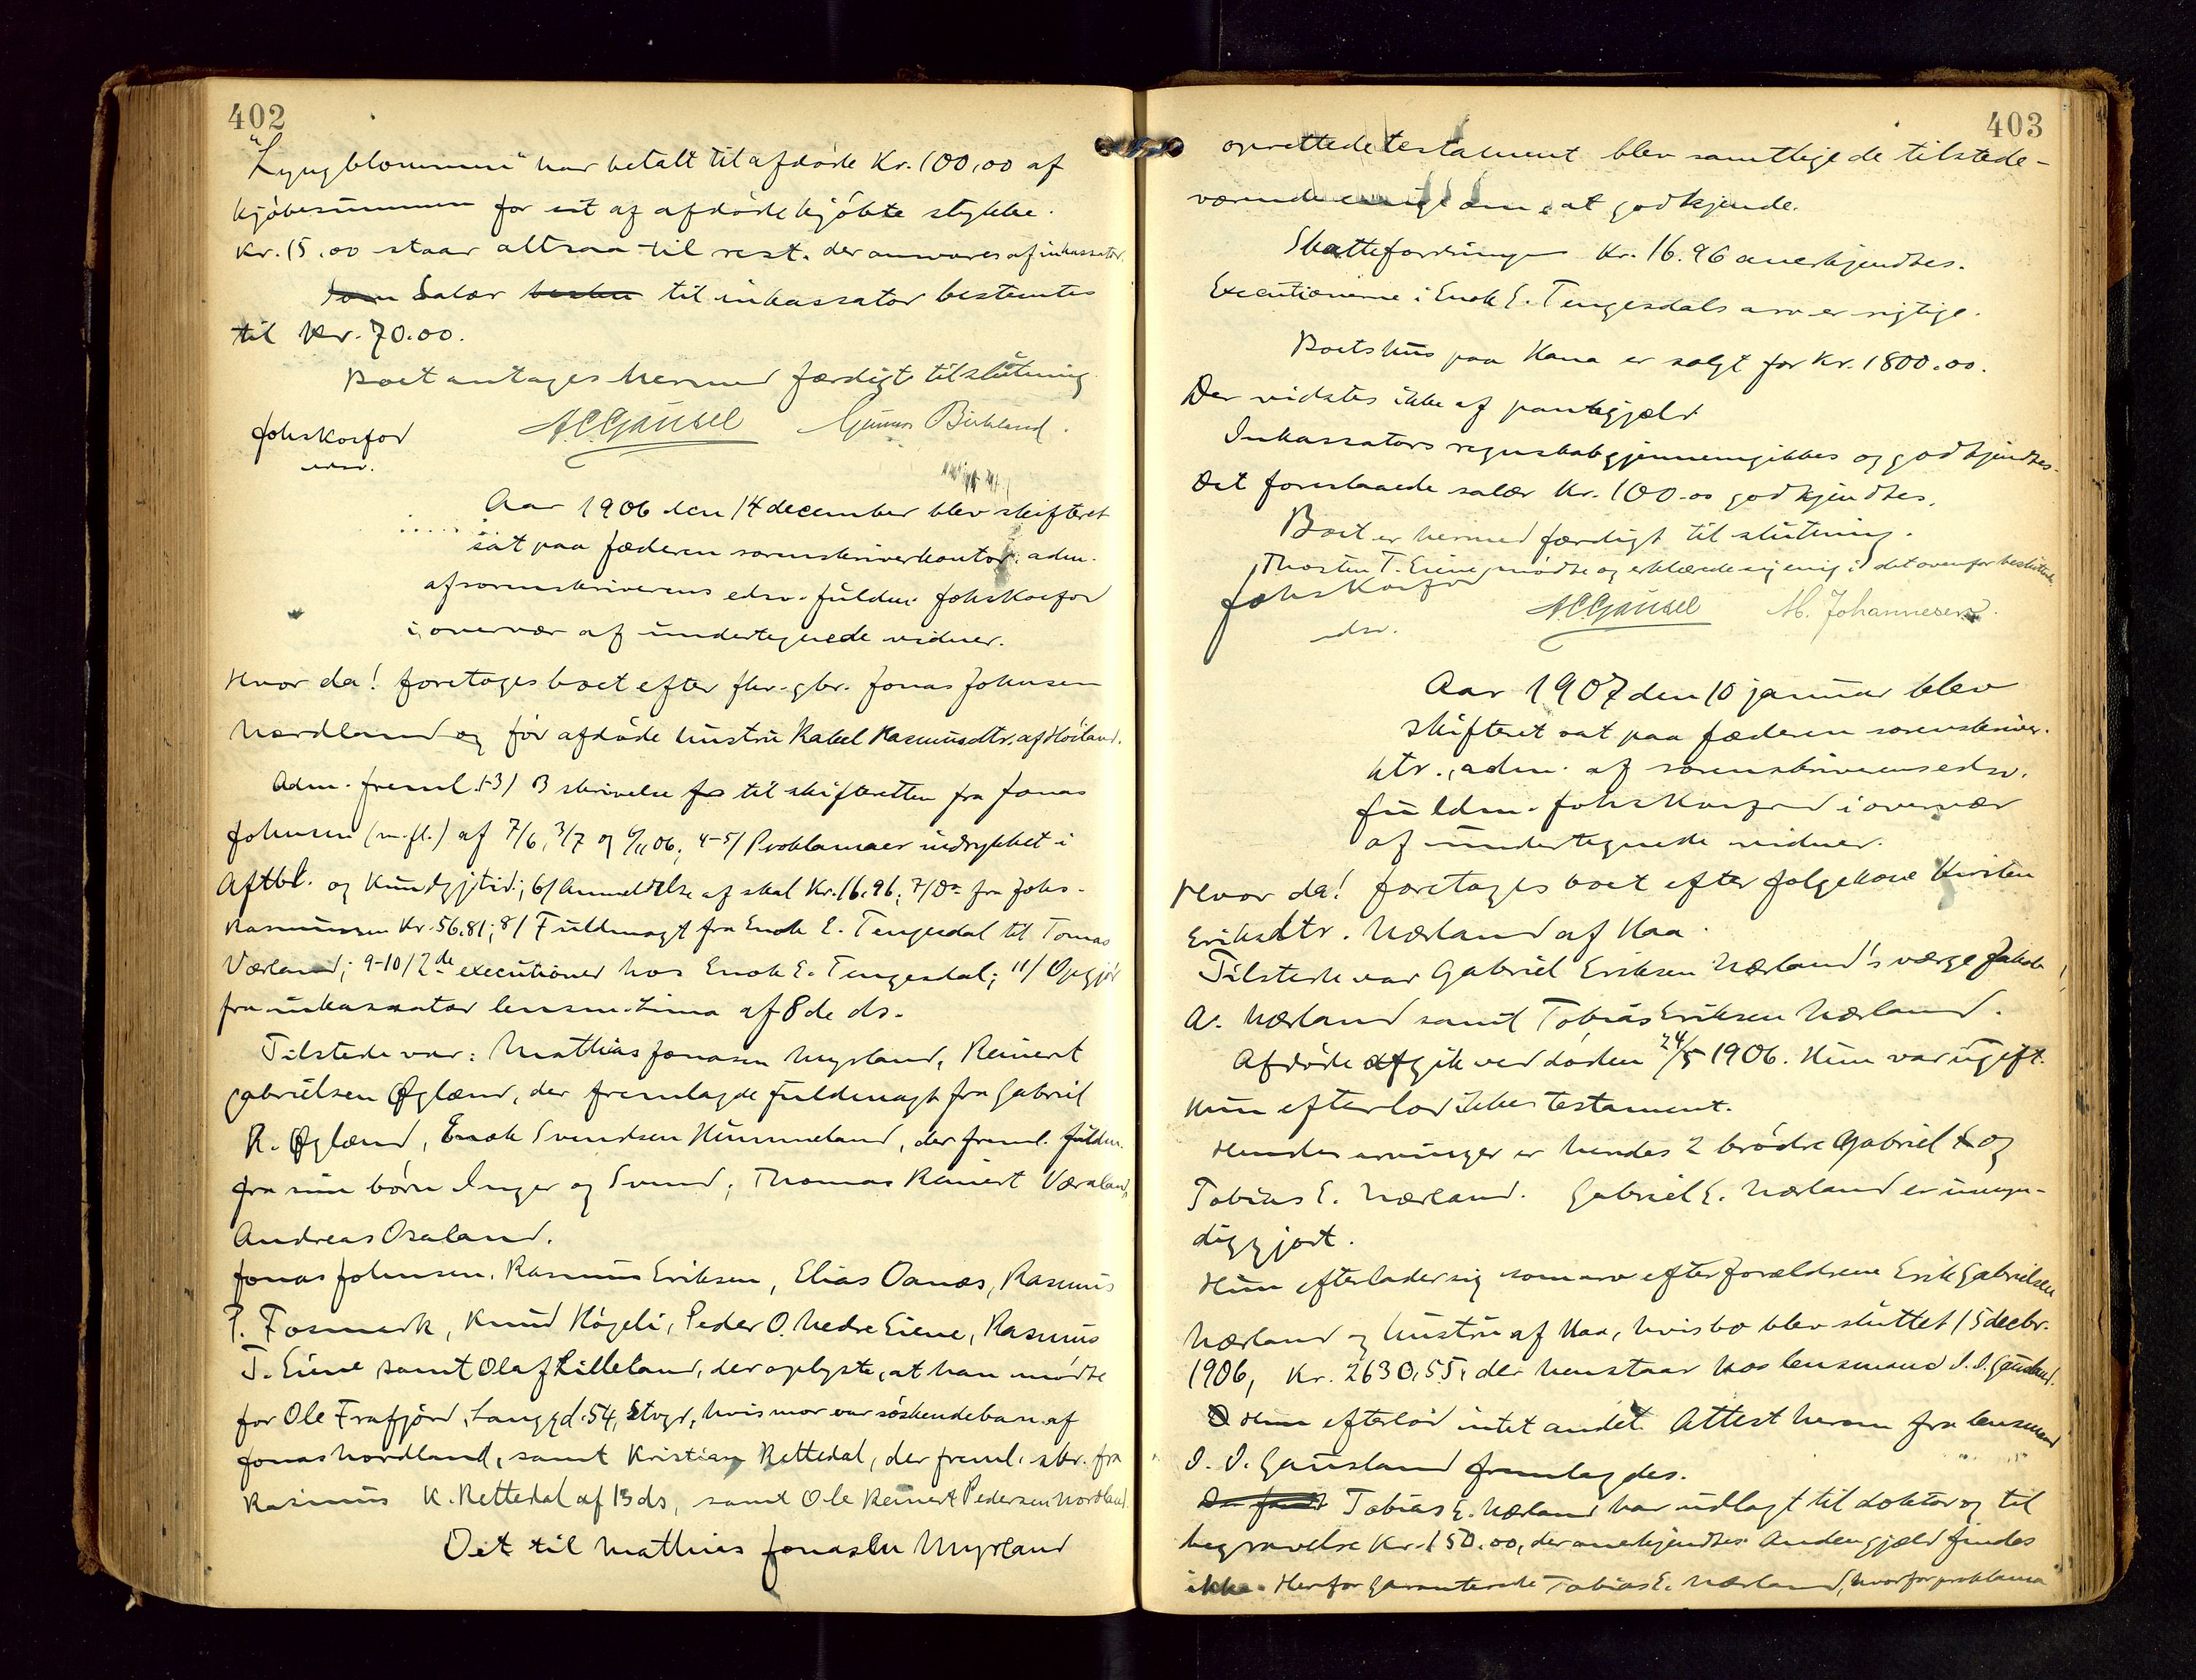 402
"Lyngblommen" har betalt til afdøde Kr. 100,00 af
kjøbesummen for et af afdøde kjøbte stykke.
Kr. 15.00 staar altsaa til rest. der ansvares af inkassator.
Som Salær til inkassator bestemtes
til Kr. 70.00.
Boet antages hermed færdigt til slutning.
Johs Korsfor ACGausel Gunnar Birkland.
edsv.
Aar 1906 den 14 december blev skifteret
sat paa Jæderen sorenskriverkontor, adm.
af sorenskriverens edsv. fuldm. Johs Korsfor
i overvær af undertegnede vidner.
Hvor da! foretoges boet efter fhv. gbr. Jonas Johnsen
Nordland og før afdøde hustru Rakel Rasmusdtr. af Høiland.
Adm. freml. 1-3/ 3 skrivelse til skifteretten fra Jonas
Johnsen (m.fl.) af 7/6, 3/7 og 6/11 06; 4-5/ Proklamaer indrykket i
Aftbl. og Kundgjtid.; 6/ Anmeldelse af skat Kr. 16.96; 7/ Do fra Johs.
Rasmussen Kr. 56.81; 8/ Fuldmagt fra Enok E. Tengesdal til Tomas
Værland; 9-10/ 2de executioner hos Enok E. Tengesdal; 11/ Opgjør
fra inkassator lensm. Lima af 8de ds.
Tilstede var: Mathias Jonasen Myrland, Reinert
Gabrielsen Øglænd, der fremlagde fuldmagt fra Gabriel
R. Øglænd, Enok Svendsen Hummeland, der freml. fuldm.
fra sine børn Inger og Svend; Thomas Reinert Værland,
Andreas Osaland.
Jonas Johnsen, Rasmus Eriksen, Elias Oanæs, Rasmus
P. Fosmark, Knud Høgeli, Peder O. Nedre Eiene, Rasmus
T. Eiene samt Olaf Lilleland, der oplyste, at han mødte
for Ole Frafjord, Langgd. 54, Stvgr, hvis mor var søskendebarn af
Jonas Nordland, samt Kristian Rettedal, der freml. skr. fra
Rasmus K. Rettedal af 13 ds, samt Ole Reinert Pedersen Nordland.
Det til Mathias Jonasen Myrland
403
oprettede testament blev samtlige de tilstede-
værende enige om at godkjende.
Skattefordringen Kr. 16.96 anerkjendtes.
Executionerne i Enok E. Tengesdals arv er rigtige.
Boets hus paa Hana er solgt for Kr. 1800.00.
Der vidstes ikke af pantegjæld.
Inkassators regnskab gjennemgikkes og godkjendtes.
Det foreslaaede salær Kr. 100.00 godkjendtes.
Boet er hermed færdigt til slutning.
Thorsten T. Eiene mødte og erklærede sig enig i det ovenfor besluttede.
Johs Korsfor ACGausel M. Johannesen.
edsv.
Aar 1907 den 10 januar blev
skifteret sat paa Jæderen sorenskriver-
ktr., adm. af sorenskriverens edsv.
fuldm. Johs Korsfor i overvær
af undertegnede vidner.
Hvor da! foretoges boet efter folgekone Kirsten
Eriksdtr. Nærland af Haa.
Tilstede var Gabriel Eriksen Nærland's værge Jakob
A. Nærland samt Tobias Eriksen Nærland.
Afdøde afgik ved døden 24/5 1906. Hun var ugift.
Hun efterlod ikke testament.
Hendes arvinger er hendes 2 brødre Gabriel og
Tobias E. Nærland. Gabriel E. Nærland er umyn-
diggjort.
Hun efterlader sig som arv efter forældrene Erik Gabrielsen
Nærland og hustru af Haa, hvis bo blev sluttet 15 decbr.
1906, Kr. 2630,55, der henstaar hos lensmand I. I. Gausland.
Hun efterlod intet andet. Attest herom fra lensmand
I. I. Gausland fremlagdes.
Tobias E. Nærland har udlagt til doktor og til
begravelse Kr. 150.00, der anerkjendtes. Anden gjæld findes
ikke. Herfor garanterede Tobias E. Nærland, hvorfor proklama